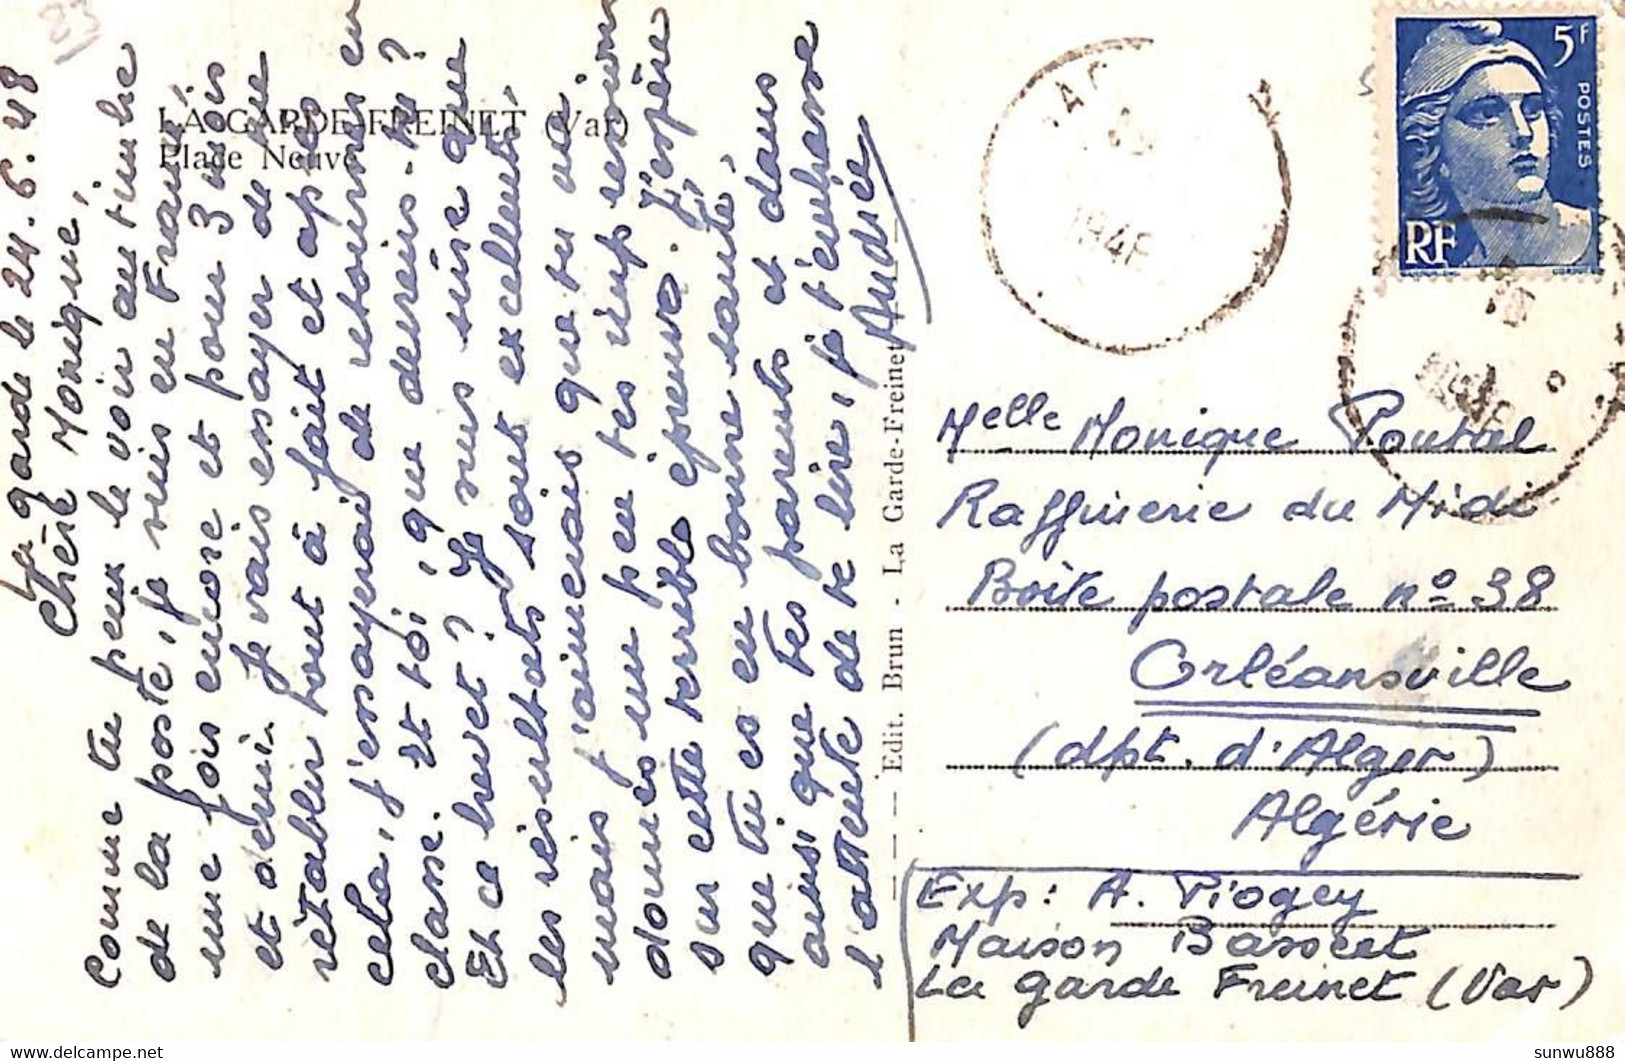 La garde le 24.6.48
Chère Monique,
Comme tu peux le voir au timbre
de la poste, je suis en France,
une fois encore et pour 3 mois
et demi. Je vais essayer de me
rétablir tout à fait et après
cela, j'essayerai de retourner en
classe. Et toi, que deviens-tu ?
Et ce brevet ? Je suis sûre que
les résultats sont excellents,
mais j'aimerais que tu me
donnes un peu tes impressions
sur cette terrible épreuve. J'espère
que tu es en bonne santé,
ainsi que tes parents et dans
l'attente de te lire, je t'embrasse
Andrée
LA GARDE-FREINET (Var)
Place Neuve
Edit. Brun - La Garde-Freinet
1948
5F
POSTES
RF
Melle Monique Poutal
Raffinerie du Midi
Boite postale nº 38
Orléansville
(dpt. d'Alger)
Algérie
Exp: A. Piogey
Maison Basset
La Garde Freinet (Var)
sunwu888